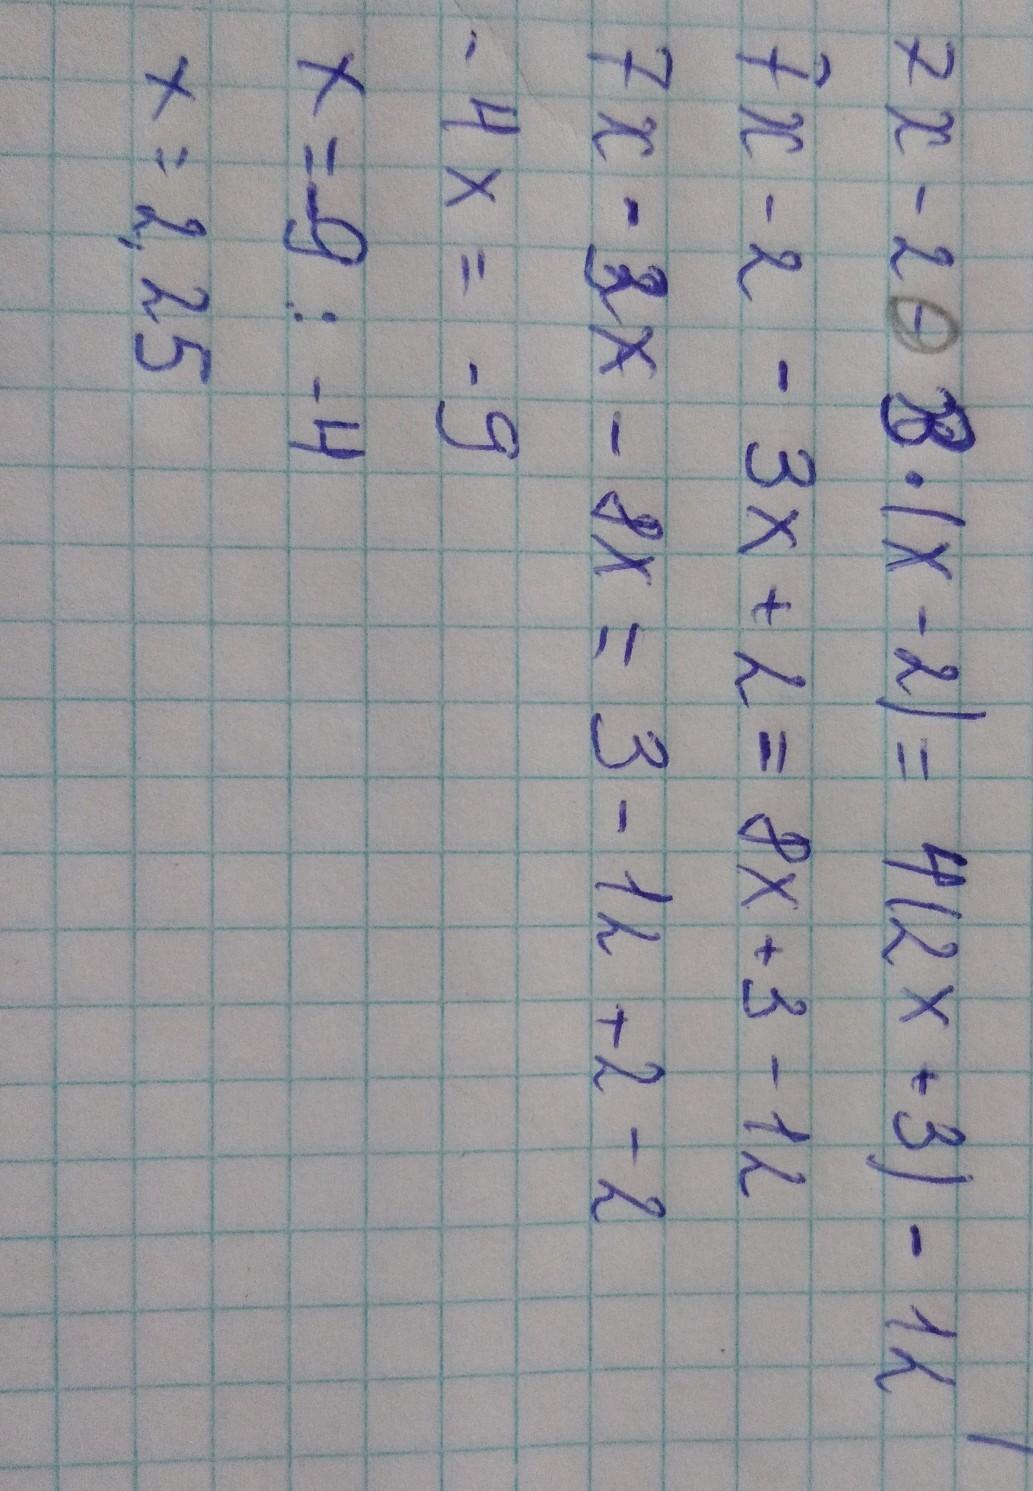 7x - 2 - 3 · (x - 2) = 4(2x + 3) - 12
7x - 2 - 3x + 2 = 8x + 3 - 12
7x - 3x - 8x = 3 - 12 + 2 - 2
- 4x = - 9
x = -9 : -4
x = 2,25